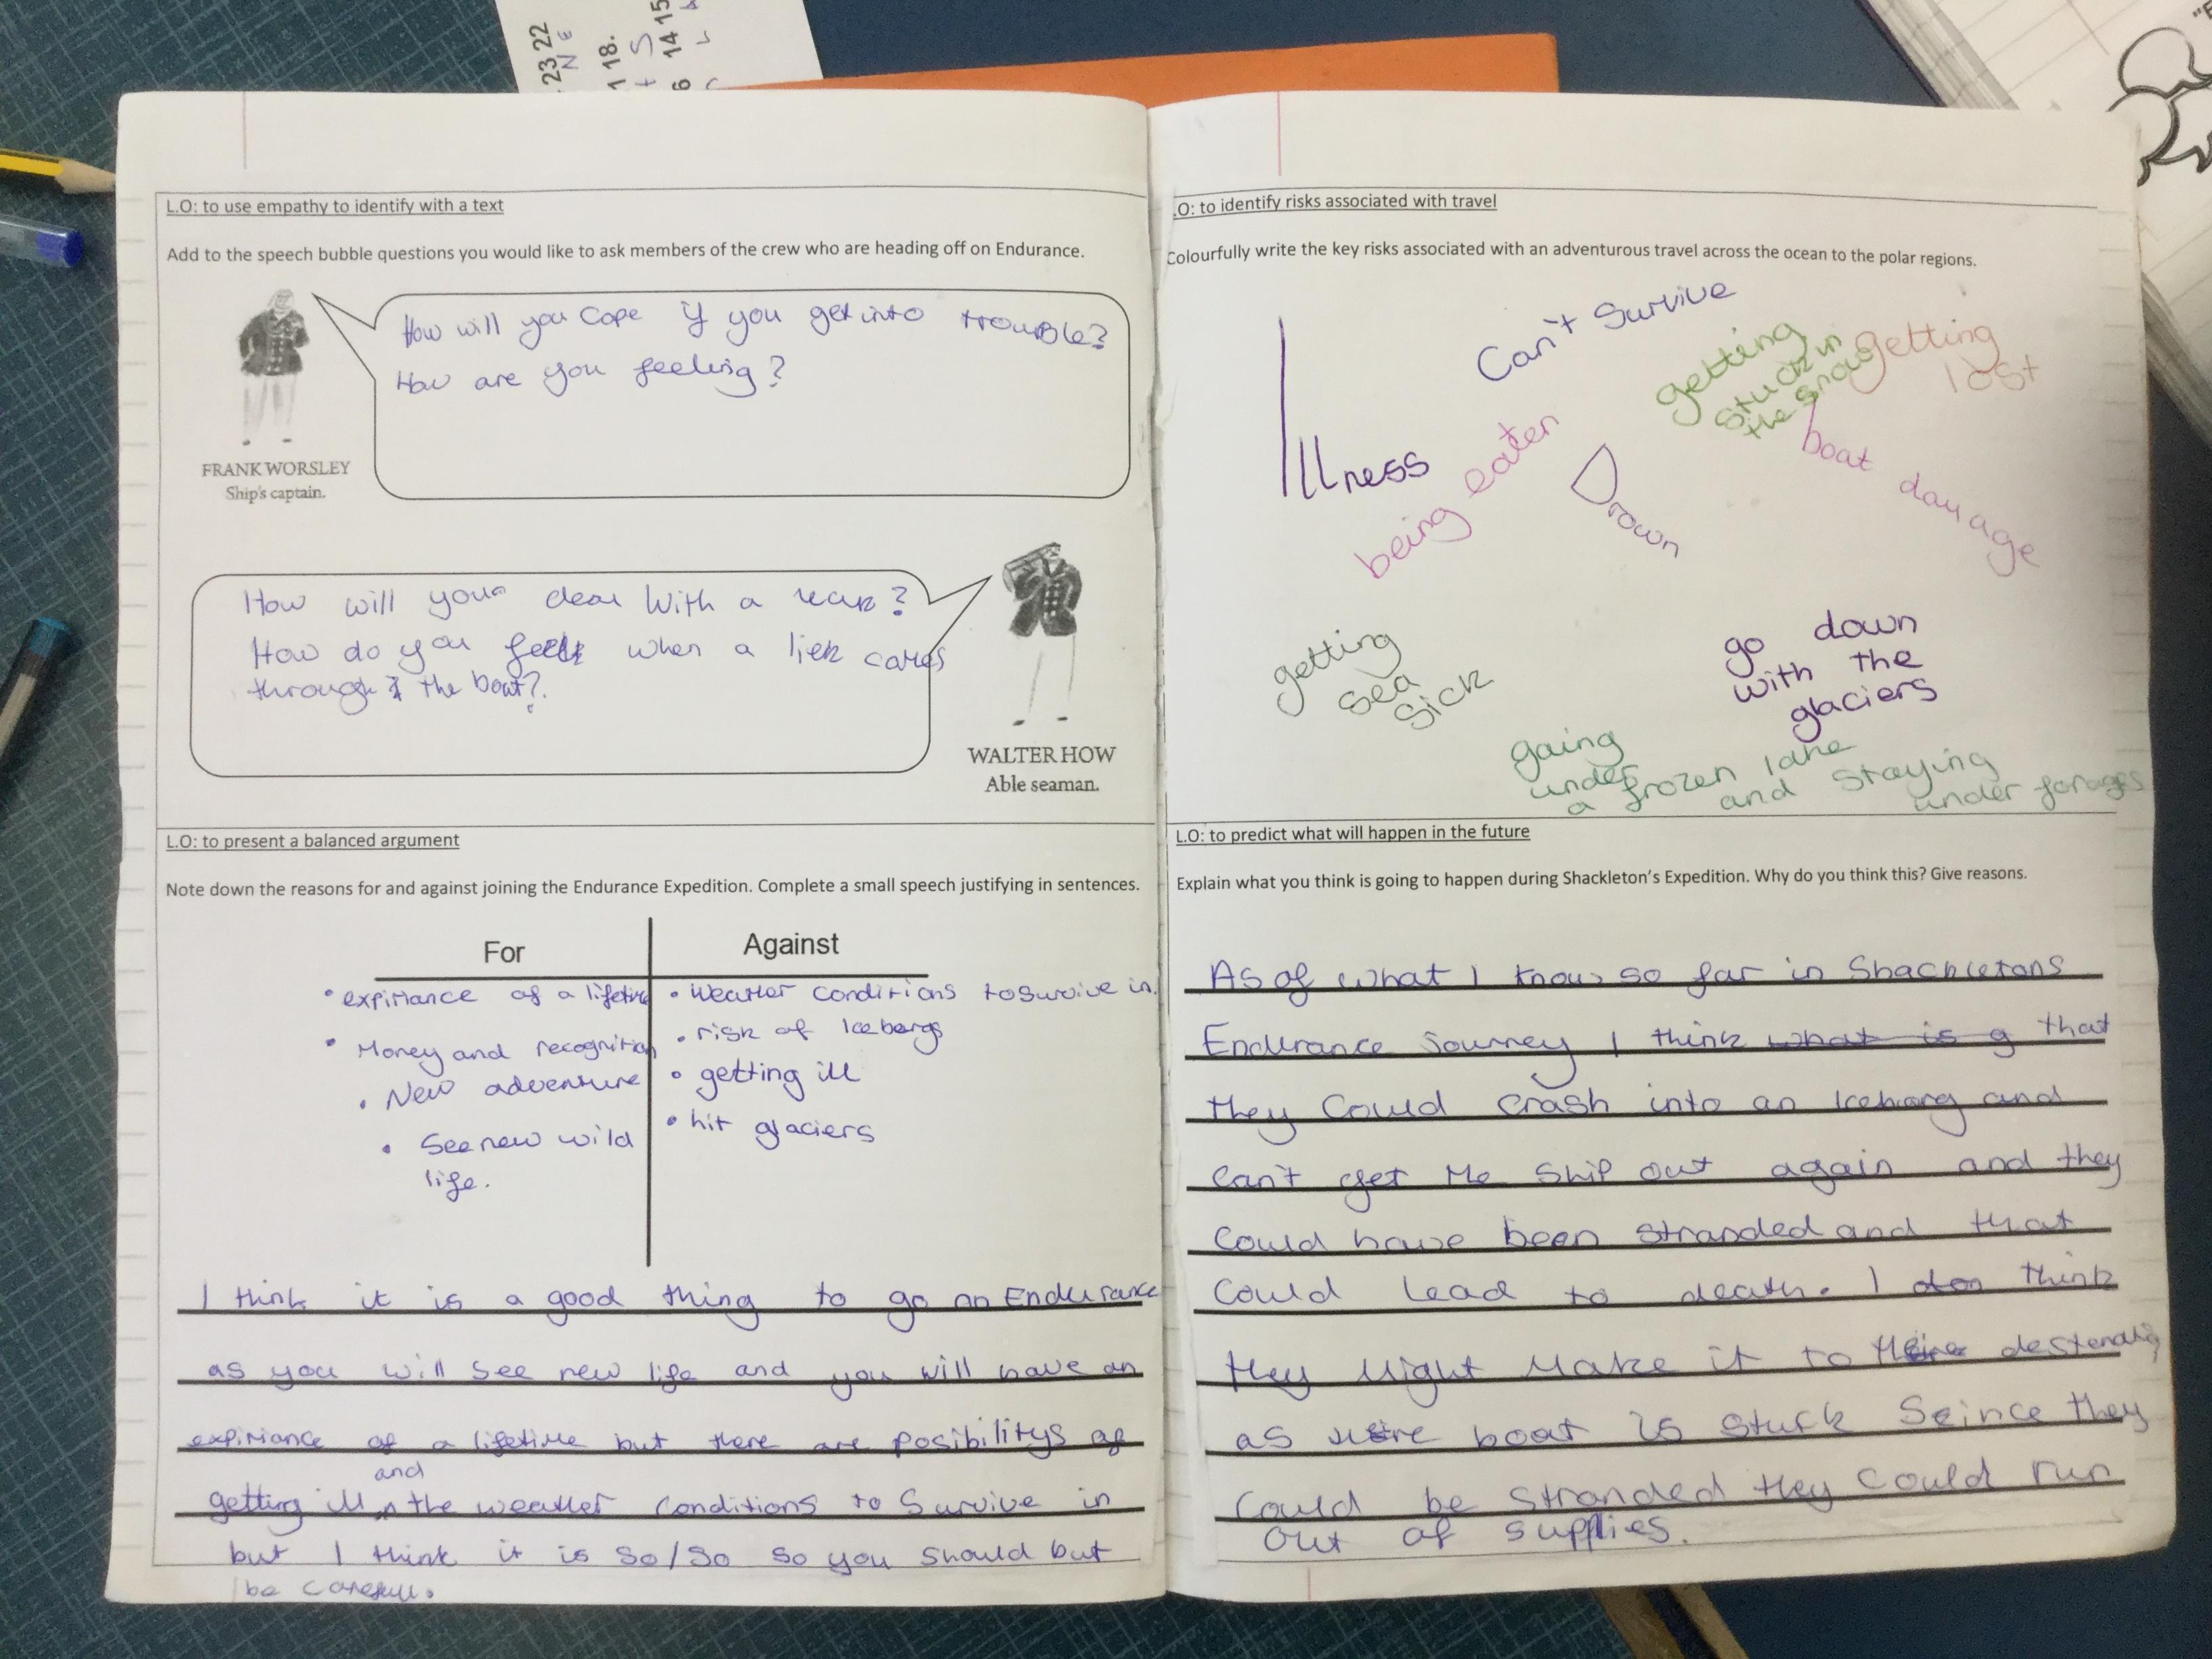 23 22
N E
1 18.
t S
6 14 15
L.O: to use empathy to identify with a text
Add to the speech bubble questions you would like to ask members of the crew who are heading off on Endurance.
How will you cope if you get into trouble?
How are you feeling?
FRANK WORSLEY
Ship's captain.
How will you deal with a
How do you feel when a
through the boat?
WALTER HOW
Able seaman.
L.O: to present a balanced argument
Note down the reasons for and against joining the Endurance Expedition. Complete a small speech justifying in sentences.
For
• expiriance of a lifetime
• Money and recognition
• New adventure
• See new wild
life.
Against
• weather conditions to survive in.
• risk of Icebergs
• getting ill
• hit glaciers
I think it is a good thing to go on Endurance
as you will see new life and you will have an
expiriance of a lifetime but there are posibilitys of
getting ill and the weather conditions to survive in
but I think it is so/so so you should but
be careful.
.O: to identify risks associated with travel
Colourfully write the key risks associated with an adventurous travel across the ocean to the polar regions.
Can't Survive
getting
stuck in
the snow
getting
lost
Illness
being eaten
Drown
boat damage
getting
sea
sick
go down
with the
glaciers
going
under
a frozen lake
and staying
under for ages
L.O: to predict what will happen in the future
Explain what you think is going to happen during Shackleton's Expedition. Why do you think this? Give reasons.
As of what I know so far in Shackletons
Endurance journey I think what is g that
they could crash into an Iceberg and
can't get the ship out again and they
could have been stranded and that
could lead to death. I think
they might make it to
as boat is stuck Seince they
could be stranded they could run
out of supplies.